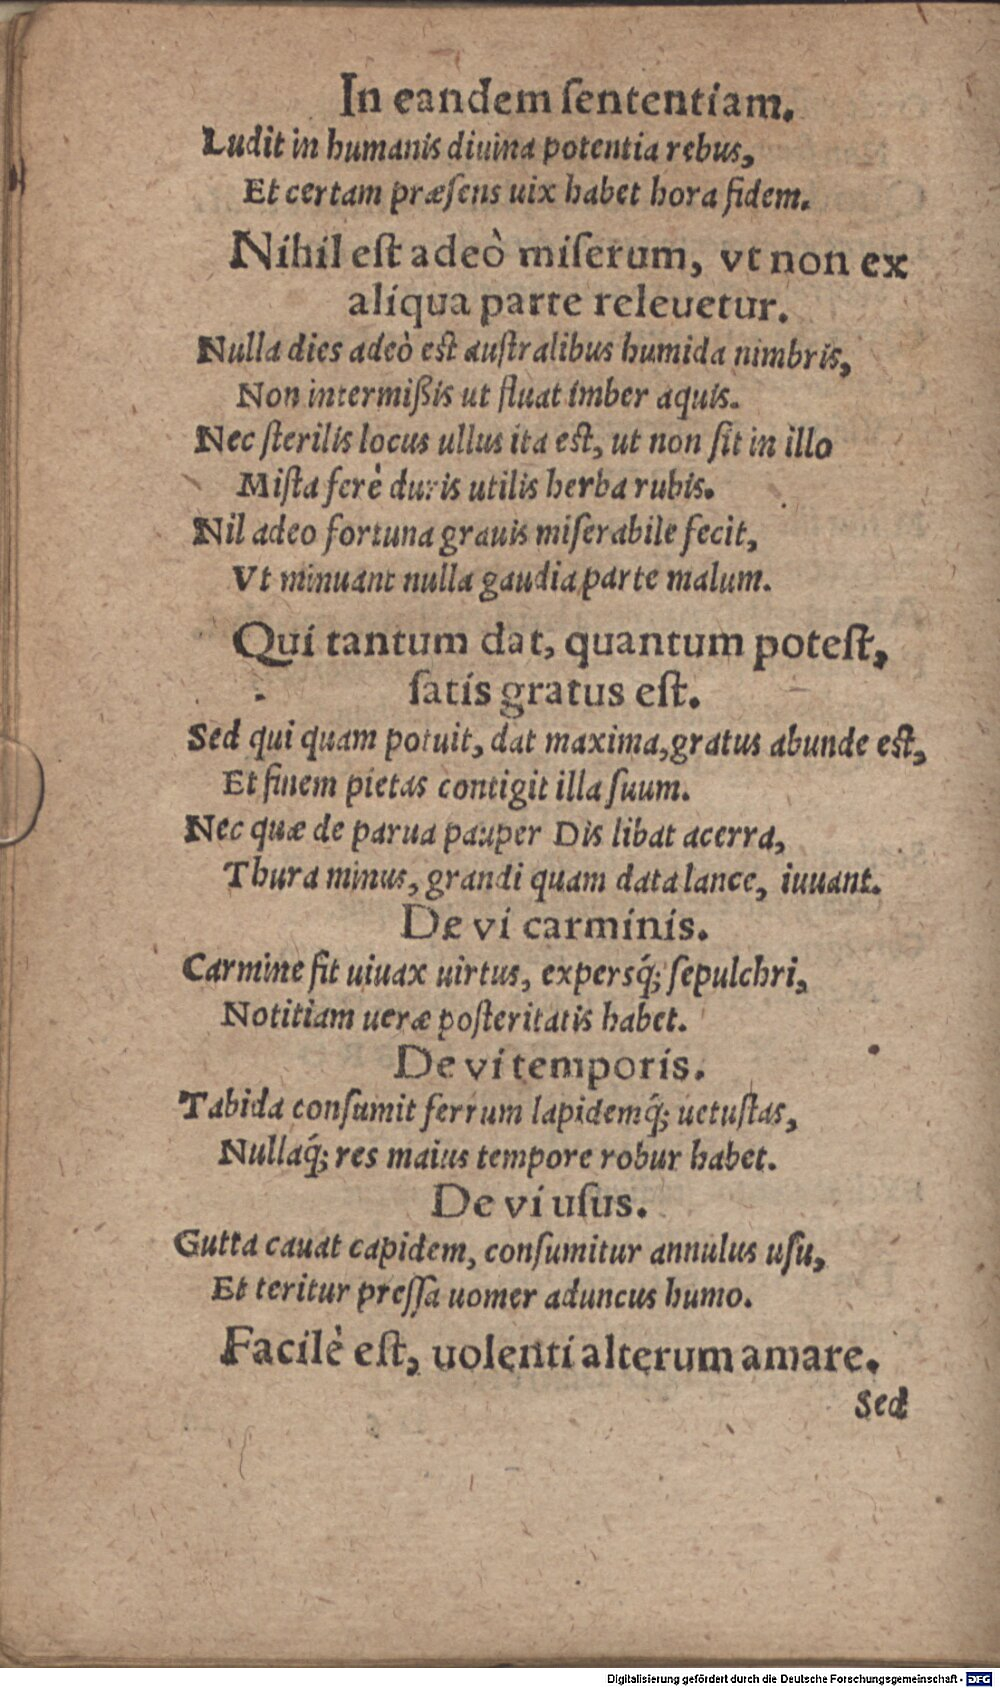 In eandem ſententiam.
Ludit in humanis diuina potentia rebus,
Et certam præſens uix habet hora fidem.
Nihil eſt adeò miſerum, vt non ex
aliqua parte releuetur.
Nulla dies adeò eſt auſtralibus humida nimbris,
Non intermißis ut fluat imber aquis.
Nec ſterilis locus ullus ita eſt, ut non ſit in illo
Miſta ferè duris utilis herba rubis.
Nil adeo fortuna grauis miſerabile fecit,
Vt minuant nulla gaudia parte malum.
Qui tantum dat, quantum poteſt,
ſatis gratus eſt.
Sed qui quam potuit, dat maxima, gratus abunde eſt,
Et finem pietas contigit illa ſuum.
Nec quæ de parua pauper Dis libat acerra,
Thura minus, grandi quam data lance, iuuant.
De vi carminis.
Carmine fit uiuax uirtus, expersq́; ſepulchri,
Notitiam ueræ poſteritatis habet.
De vi temporis.
Tabida conſumit ferrum lapidemq́; uetuſtas,
Nullaq́; res maius tempore robur habet.
De vi uſus.
Gutta cauat capidem, conſumitur annulus uſu,
Et teritur preſſa uomer aduncus humo.
Facilè eſt, uolenti alterum amare.
Sed
Digitalisierung gefördert durch die Deutsche Forschungsgemeinschaft - DFG